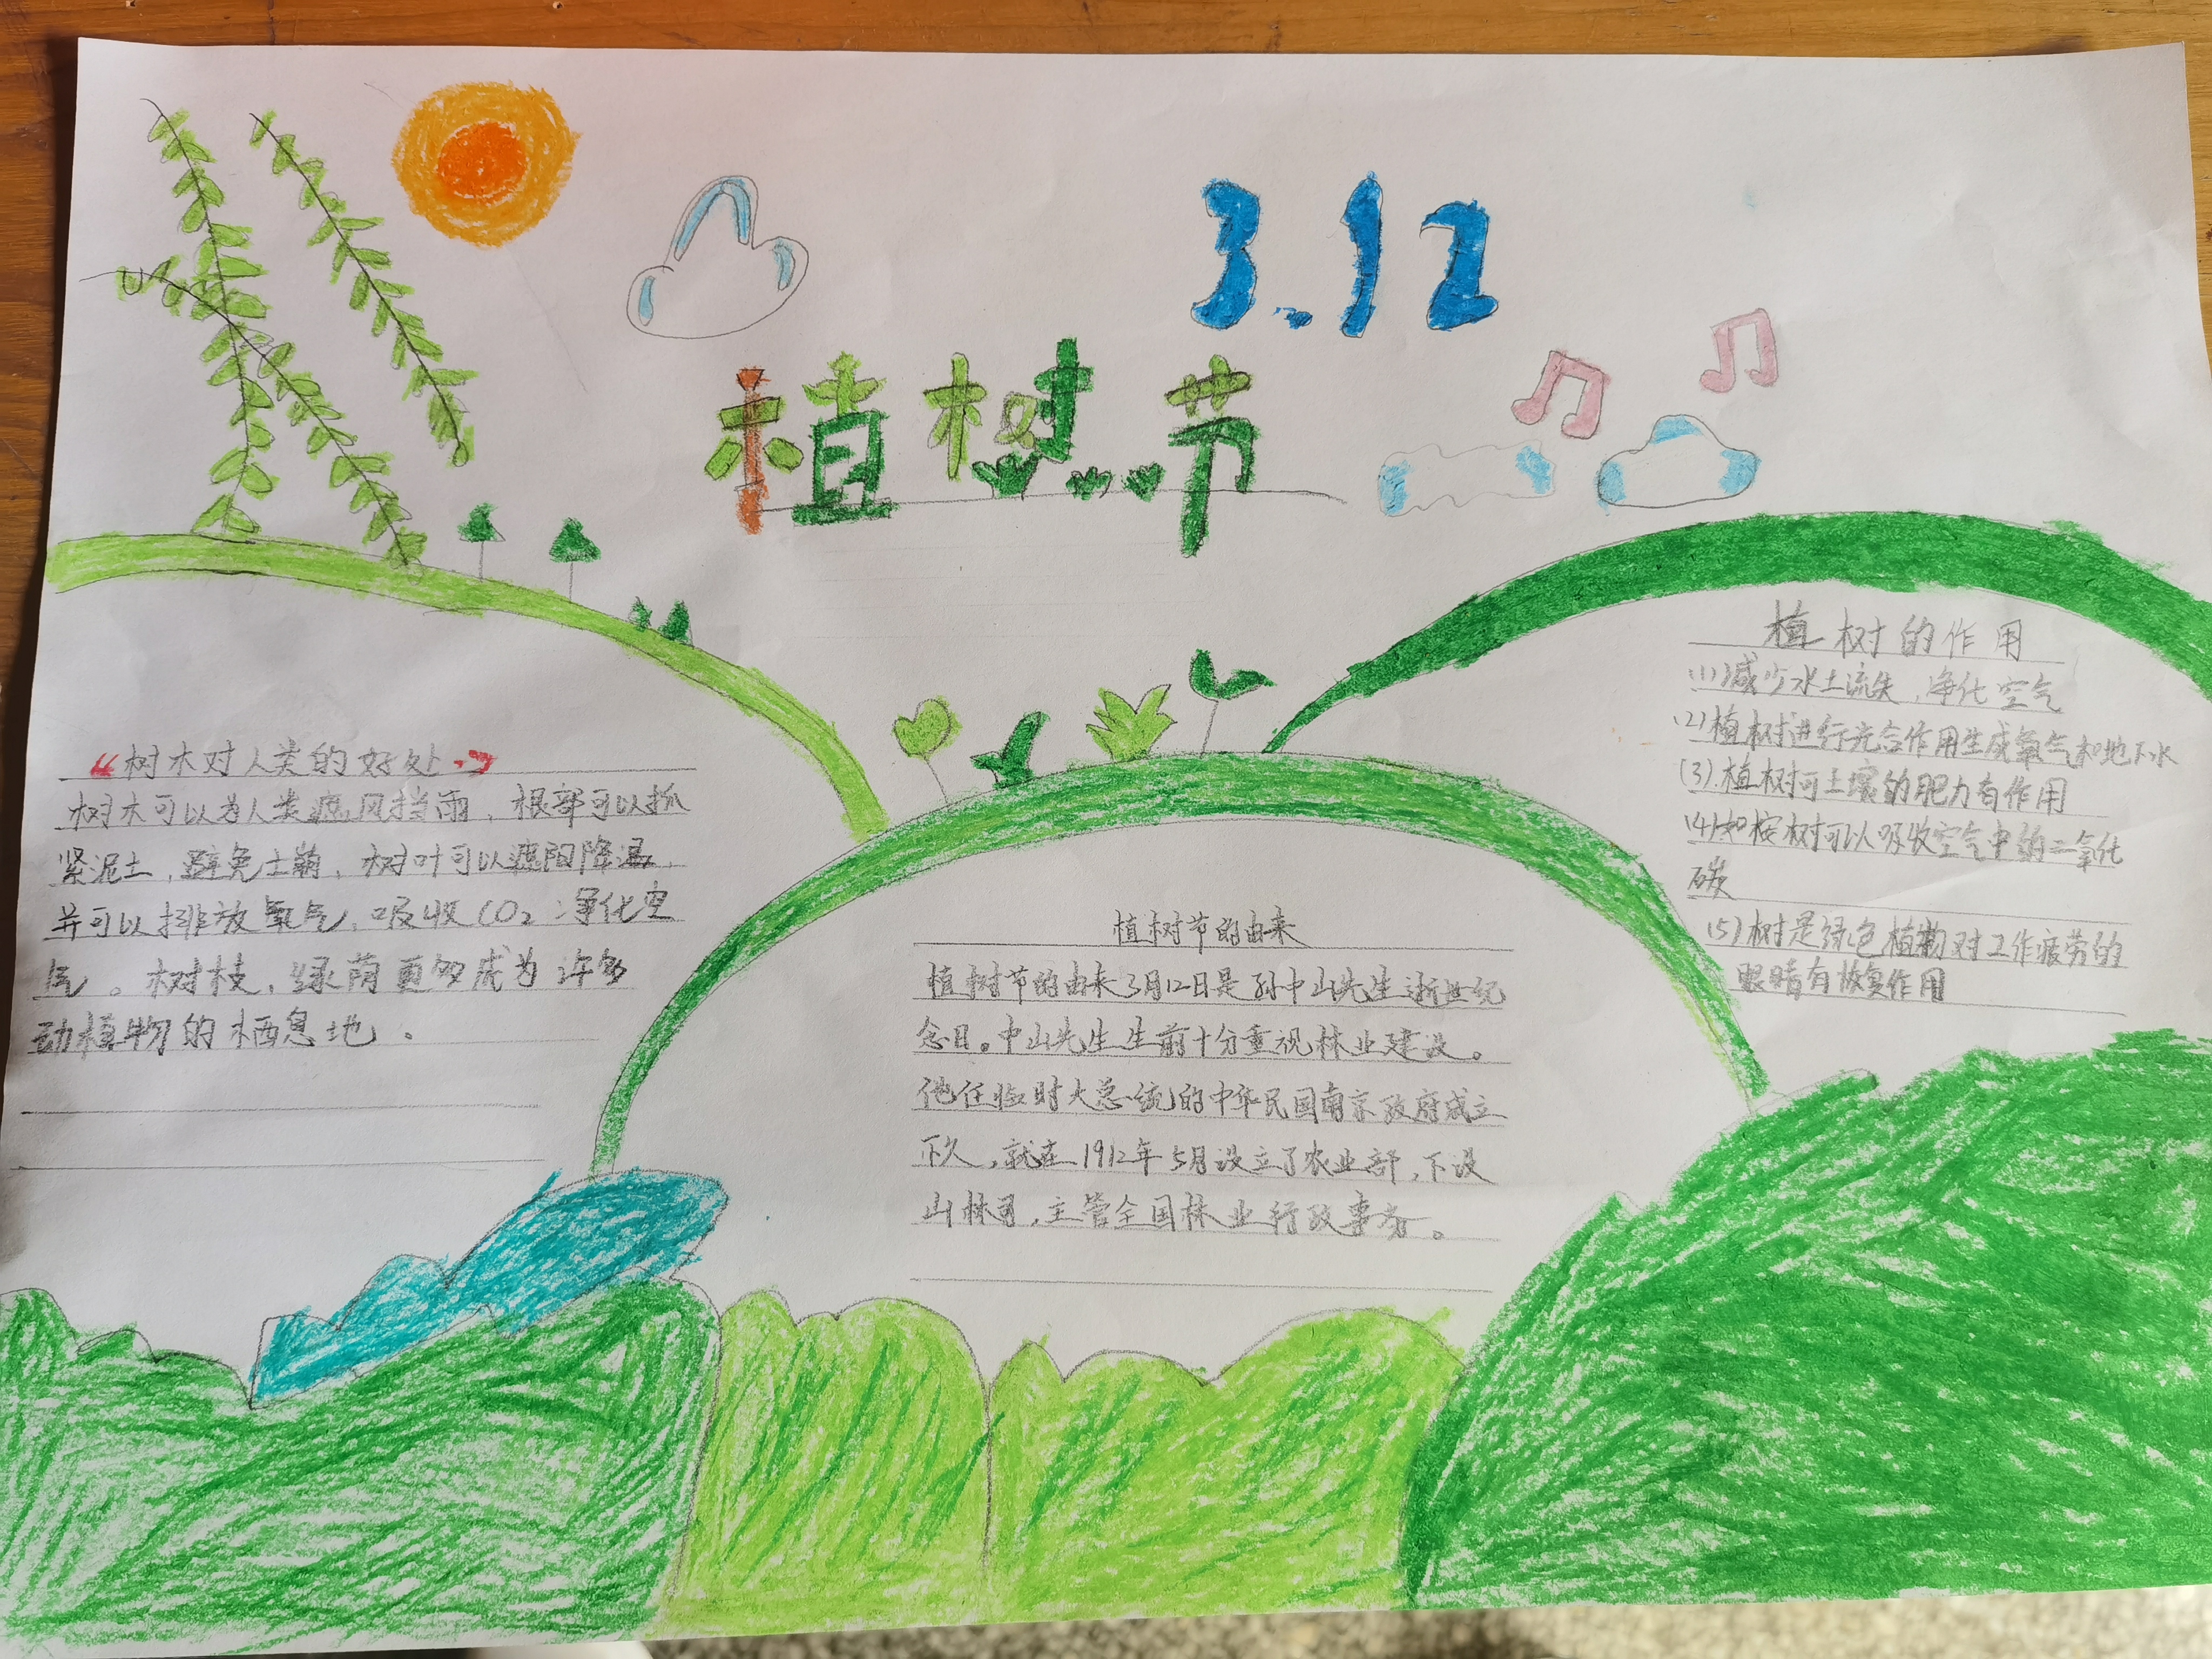 3.12
植树节
“树木对人类的好处”
树木可以为人类遮风挡雨，根部可以抓
紧泥土，避免土崩，树叶可以遮阳降温
并可以排放氧气，吸收CO₂净化空
气。树枝，绿荫更够成为许多
动植物的栖息地。
植树节的由来
植树节的由来3月12日是孙中山先生逝世纪
念日。中山先生生前十分重视林业建设。
他任临时大总统的中华民国南京政府成立
不久，就在1912年5月设立了农业部，下设
山林司，主管全国林业行政事务。
植树的作用
(1)减少水土流失，净化空气
(2)植树进行光合作用生成氧气和地下水
(3).植树可土壤的肥力有作用
(4)如桉树可以吸收空气中的二氧化
碳
(5)树是绿色植物对工作疲劳的
眼睛有恢复作用